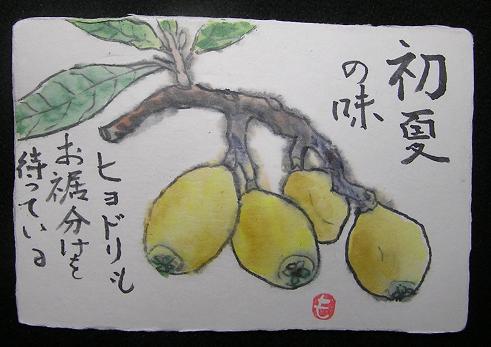 初夏
の味
ヒヨドリも
お裾分けを
待っている